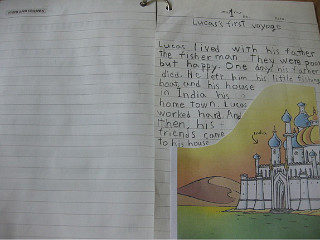 1
Lucas's first voyage
Lucas lived with his father
the fisherman. They were poor
but happy. One day, his father
died. He left him his little fishing
boat, and his house
in India his
home town. Lucas
worked hard. And
then, his
friends came
to his house